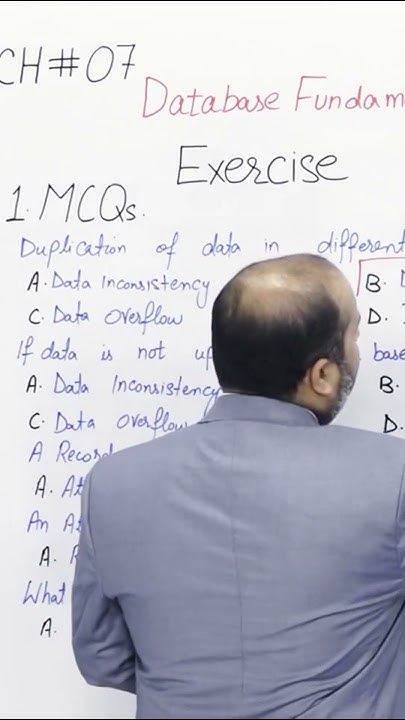 CH#07
Database Fundam
Exercise
1. MCQs.
Duplication of data in different
A. Data Inconsistency B.
C. Data Overflow D.
If data is not up base
A. Data Inconsistency B.
C. Data Overflow D.
A Record
A. At
An At
A. R
What
A.